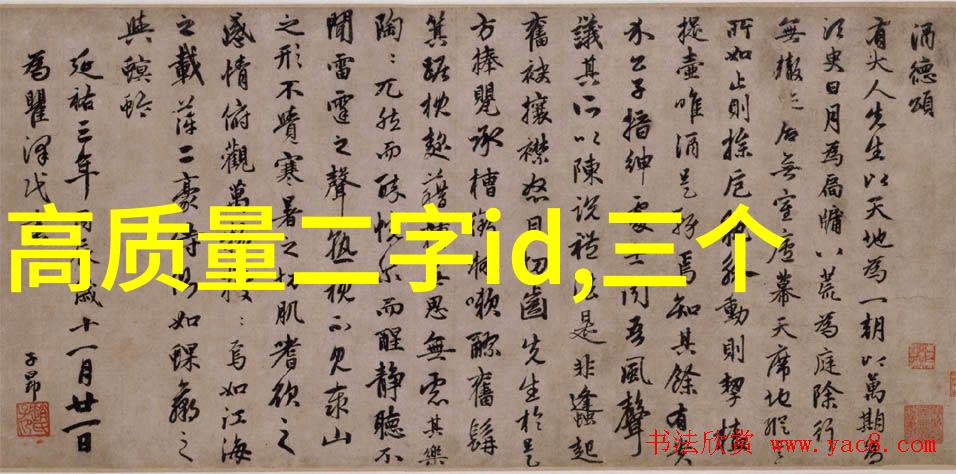 酒德頌
有大人先生以天地為一朝以萬期為
須臾日月為扃牖八荒為庭除行
無轍迹居無室廬幕天席地縱意
所如止則操卮執觚動則挈榼
提壺唯酒是務焉知其餘有貴
介公子搢紳處士聞吾風聲
議其所以陳說禮法是非鋒起
奮袂攘襟怒目切齒先生於是
方捧甖承槽銜杯漱醪奮髯
箕踞枕麴藉糟無思無慮其樂
陶〻兀然而醉怳尔而醒靜聽不
聞雷霆之聲孰視不見泰山
之形不覺寒暑之切肌嗜欲之
感情俯觀萬物擾〻焉如江海
之載萍二豪侍側如蜾蠃之
與螟蛉
延祐三年丙辰歲十一月廿一日
為瞿澤民
子昂
高质量二字id,三个
书法欣赏 www.yac8.com